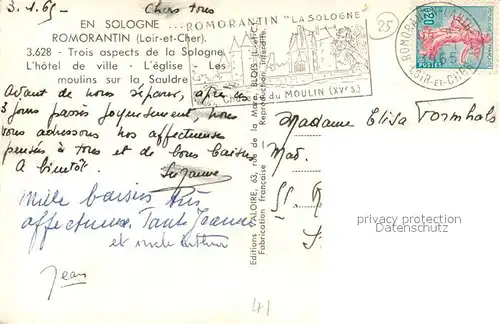 3.1.65 Chers tous
EN SOLOGNE ...
ROMORANTIN (Loir-et-Cher).
3.628 - Trois aspects de la Sologne
L'hôtel de ville - L'église - Les
moulins sur la Sauldre
ROMORANTIN "LA SOLOGNE"
du MOULIN (XVe s.)
25
ROMORANTIN
LOIR-ET-CHER
0,20
POSTES
Avant de nous séparer, après
3 jours passés joyeusement, nous
vous adressons nos affectueuses
pensées à tous et de bons baisers
A bientôt. Suzanne
Mille baisers très
affectueux. Tante Jeanne
et oncle Arthur
Jean
Editions VALOIRE, 63, rue de la Mare, BLOIS (L.-et-C.)
Fabrication française - Reproduction interdite.
Madame Elisa Formhals
Mad.
St.
privacy protection
Datenschutz
41